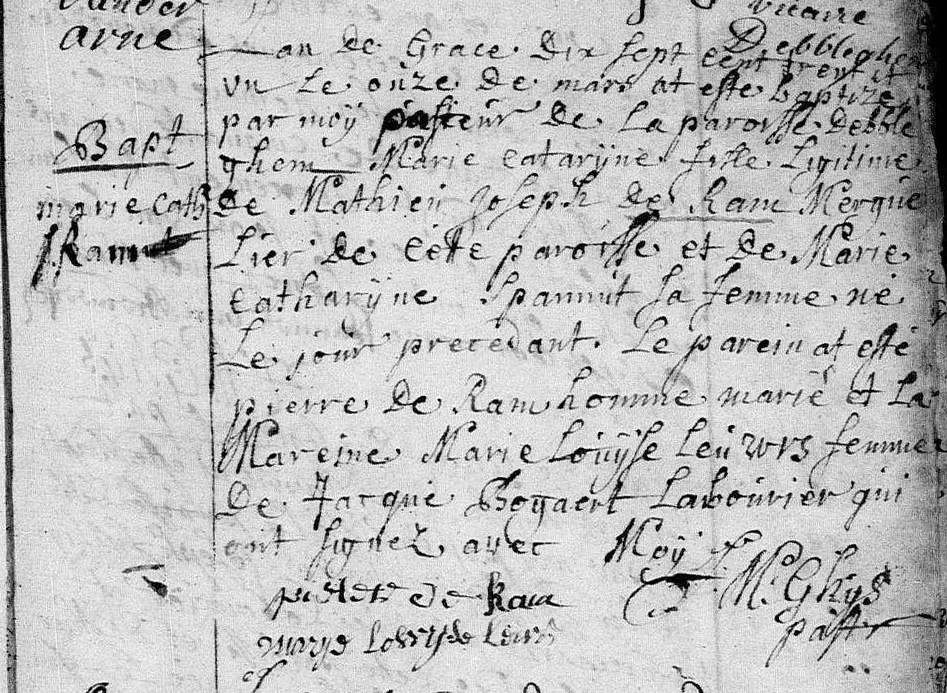 arne
vicaire
Debbleghem
L an de Grace Dix sept cent trent et
vn Le onze de mars at este baptizé
par moÿ pasteur De La paroisse Debble
ghem Marie cataryne fille Ligitime
de Mathieu joseph de Ram Mergue
Lier de cette paroisse et de Marie
catharÿne Spannut sa femme né
Le jour precedant. Le parein at esté
pierre De Ram homme marié et La
Mareine Marie Loüÿse Leuwrs femme
De Jacque Bogaert Labourier qui
ont signez avec Moÿ
Bapt
marie cath
Ram
pieter De Ram
marye Lowyse Leuwrs
M. Ghÿs
pastr